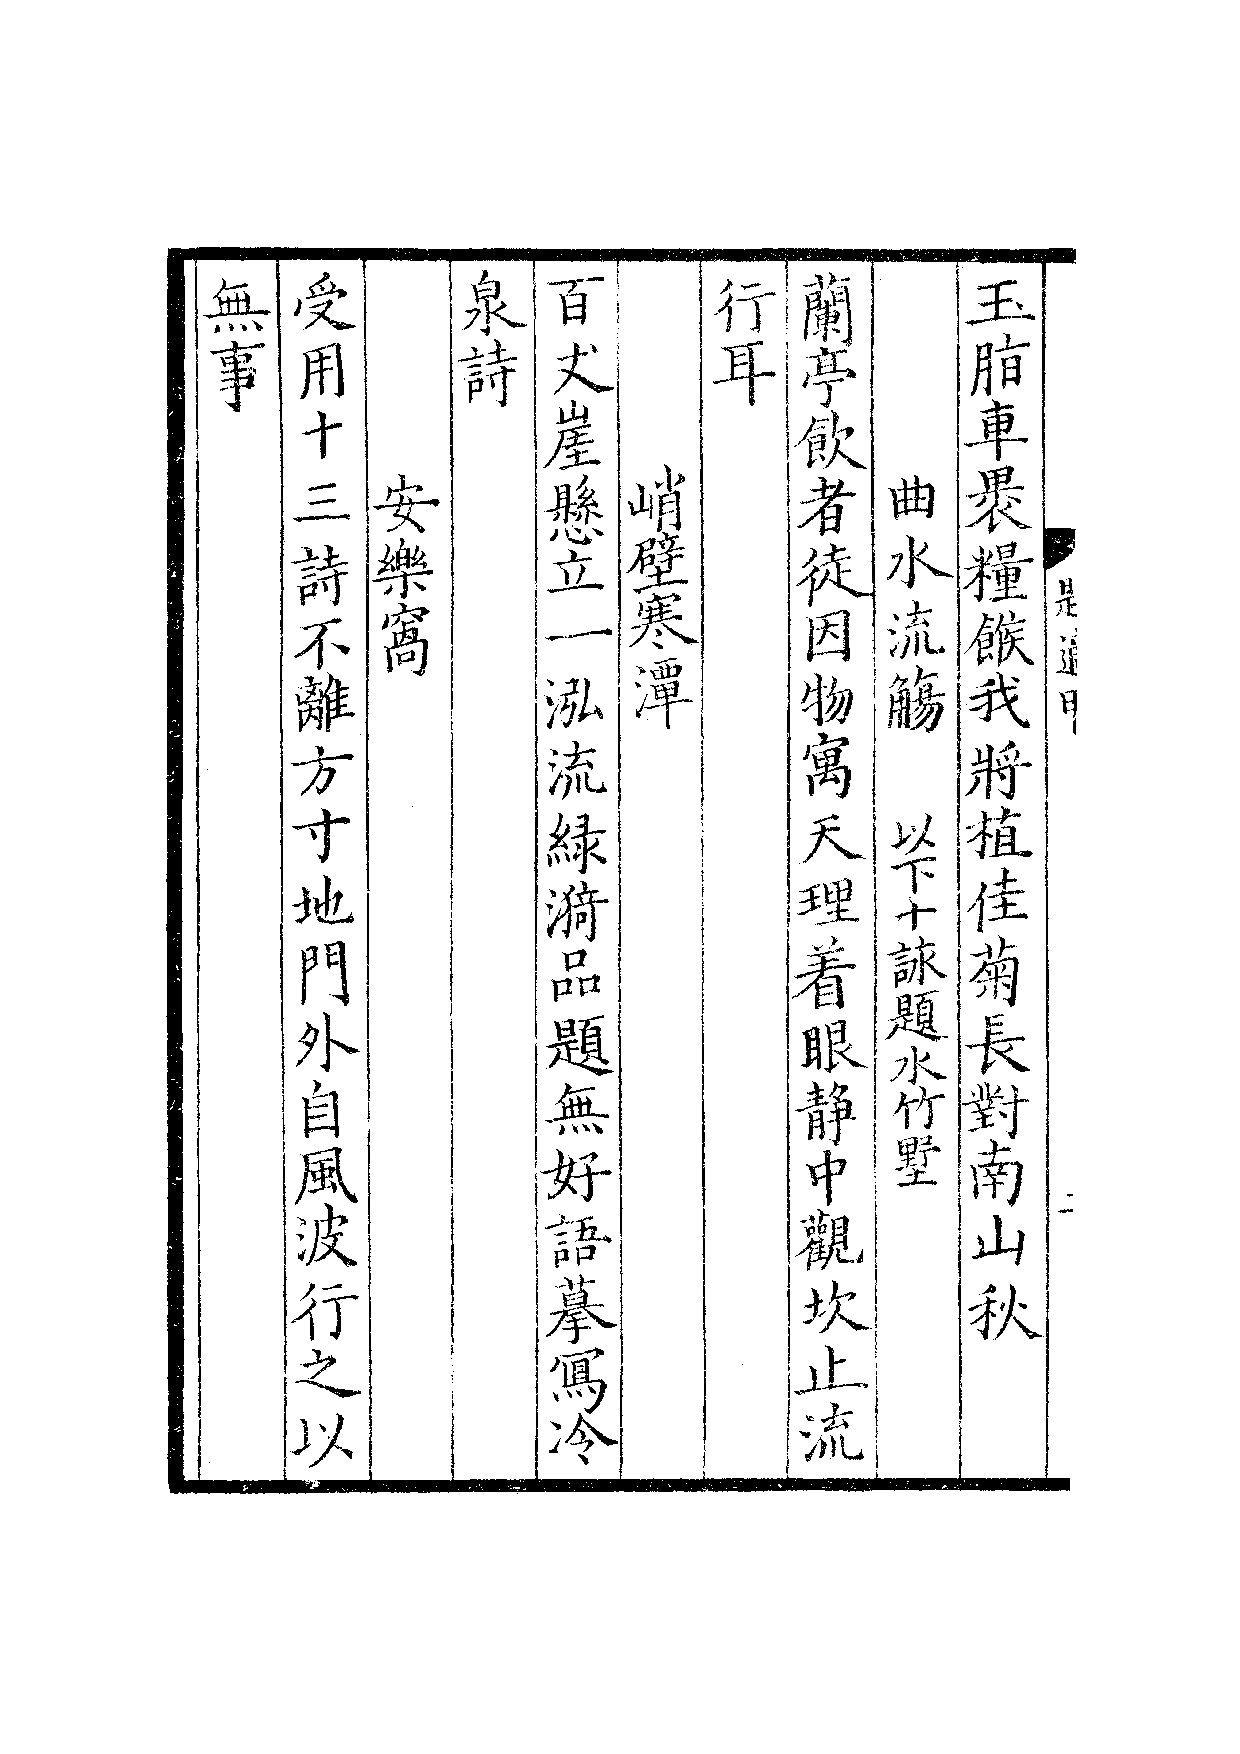 玉脂車褁糧餱我將植佳菊長對南山秋
曲水流觴　以下十詠題水竹墅
蘭亭飲者徒因物寓天理着眼静中觀坎止流
行耳
峭壁寒潭
百𠀋崖懸立一泓流緑漪品題無好語摹寫冷
泉詩
安樂窩
受用十三詩不離方寸地門外自風波行之以
無事
二